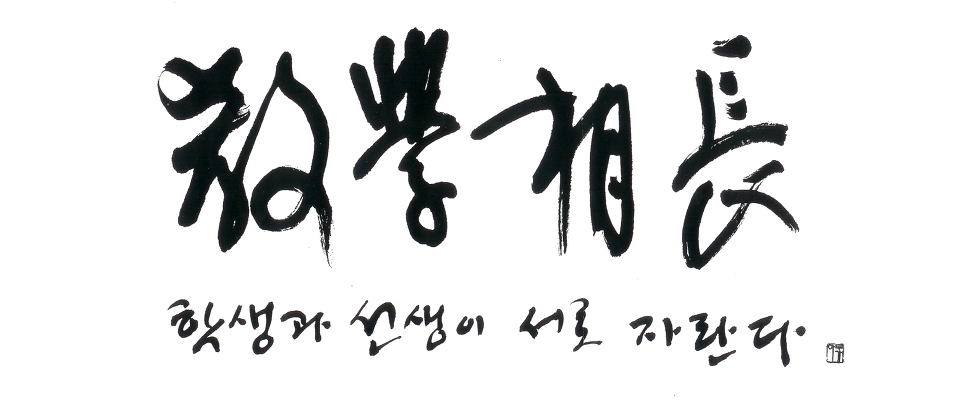 敎學相長
학생과 선생이 서로 자란다.